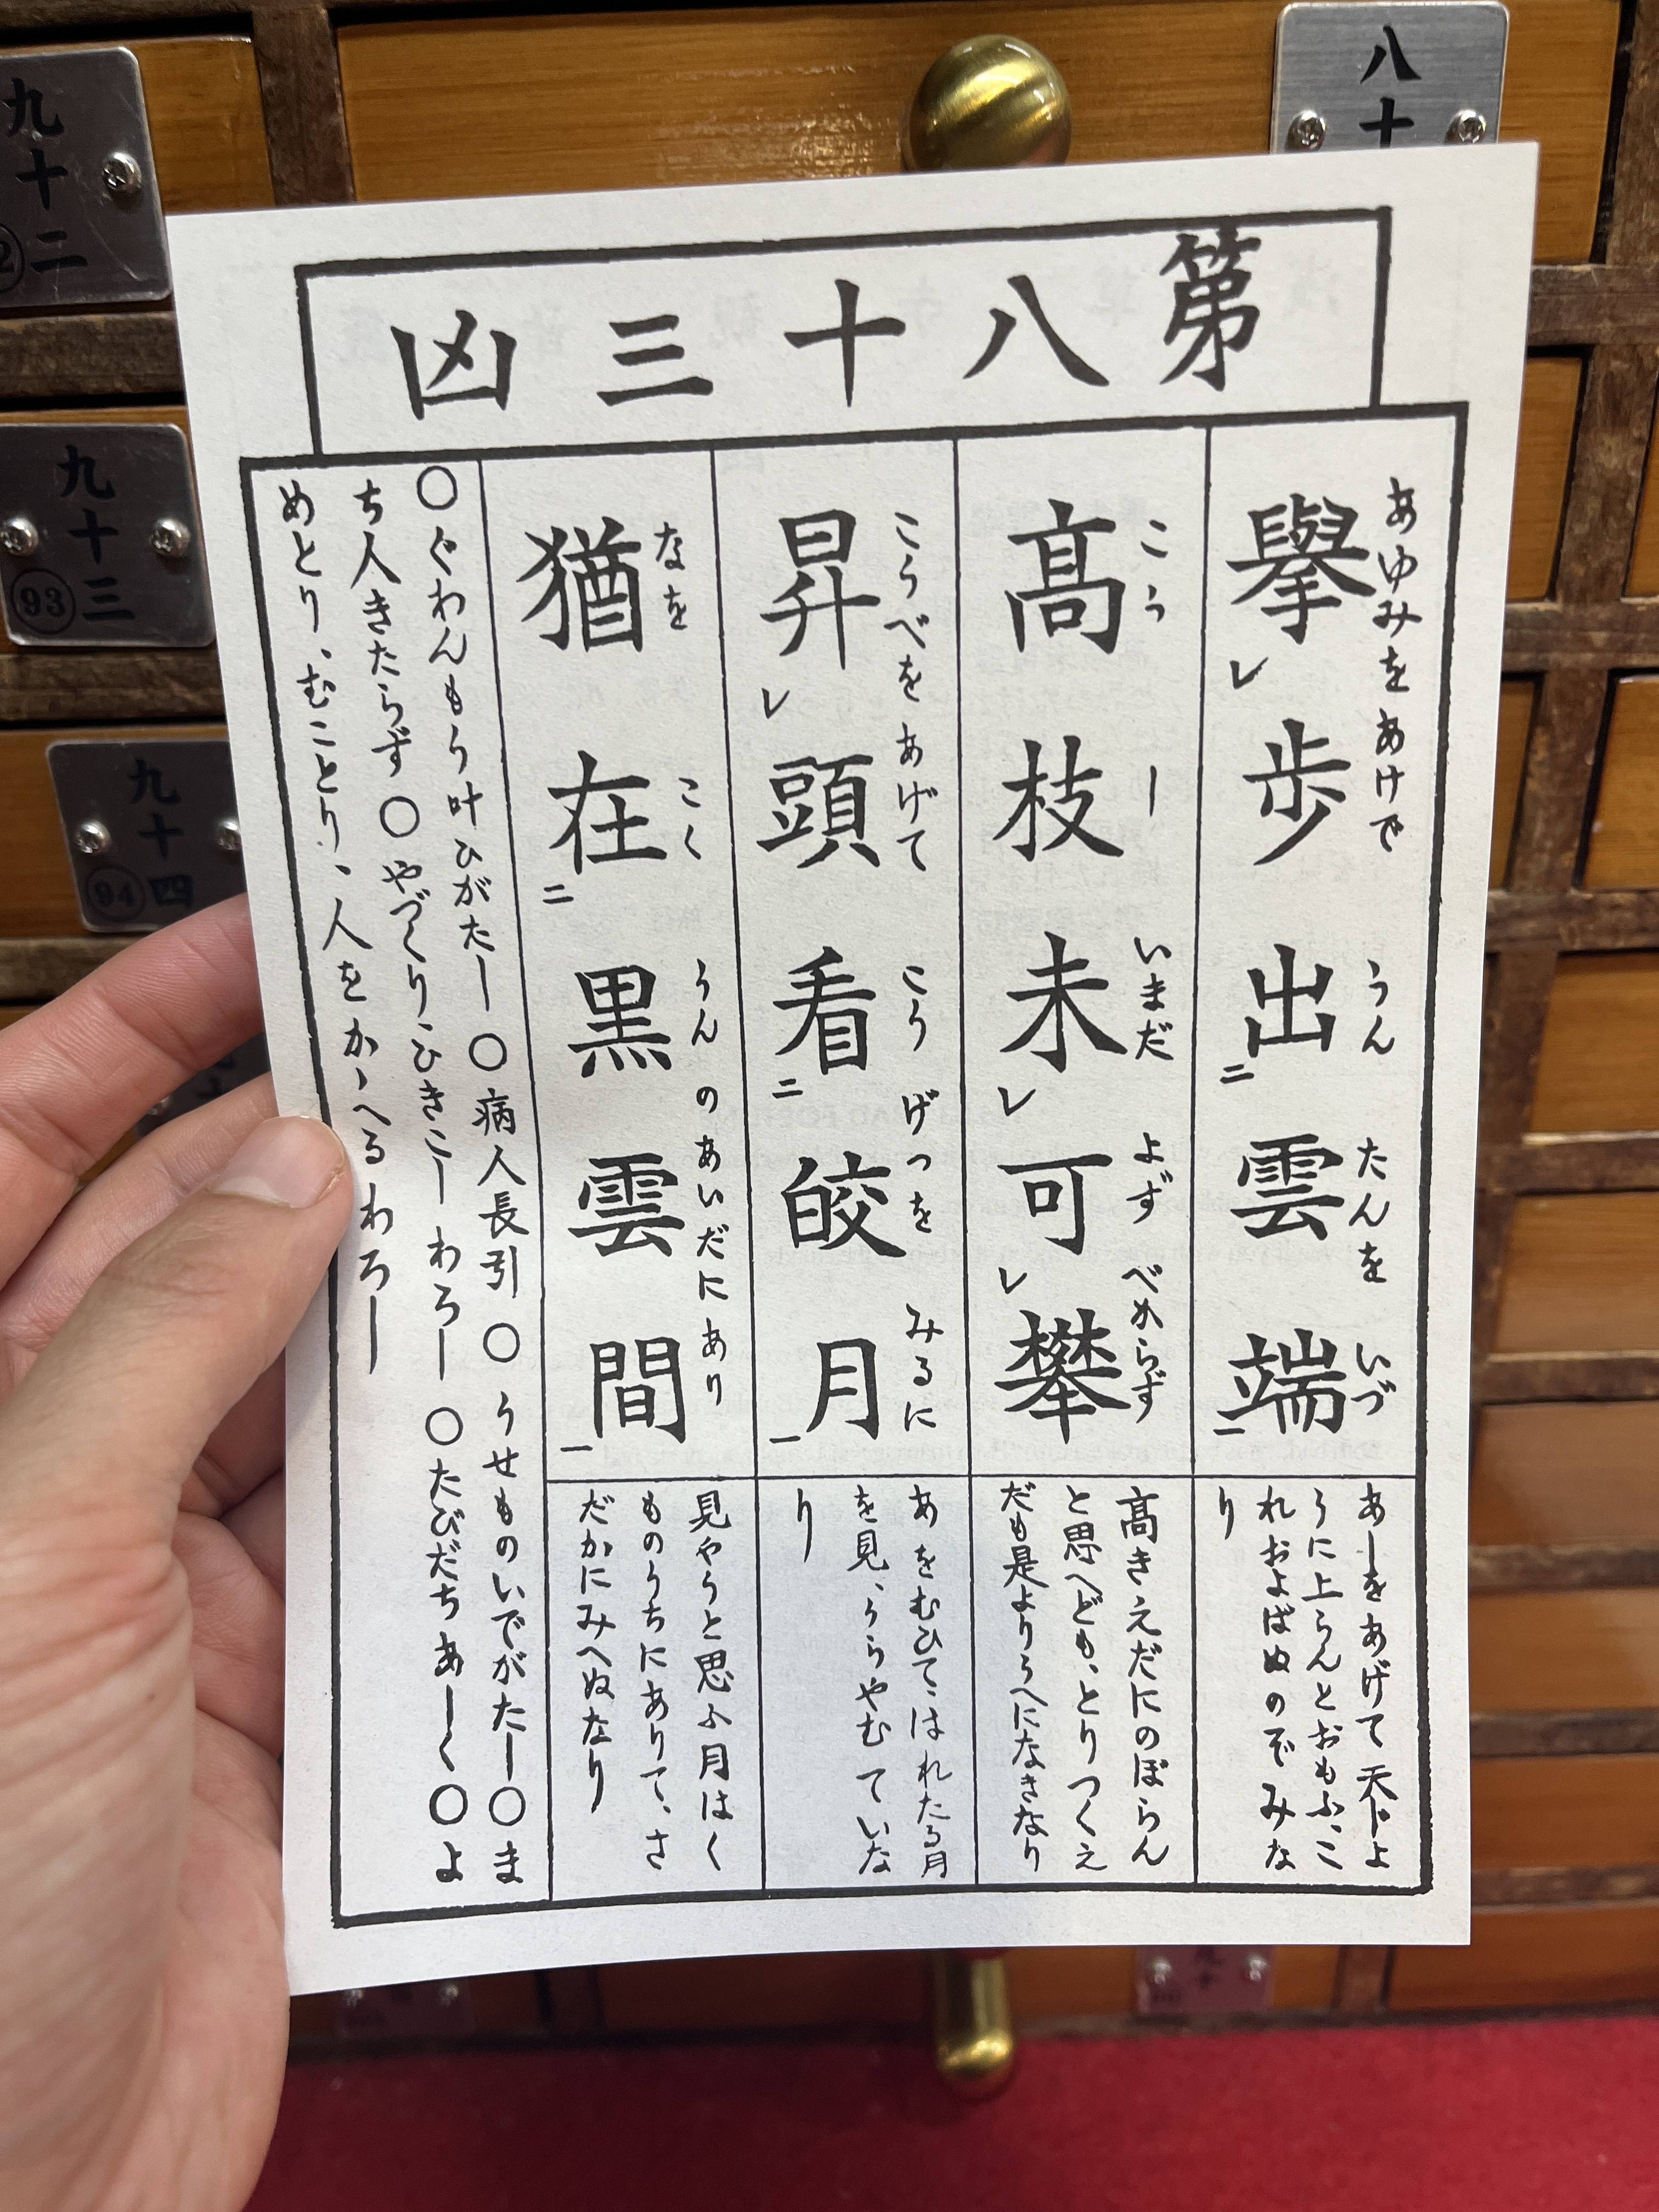 第八十三凶
擧歩出雲端
あゆみをあけで うん たんを いづ
レ 二 一
あしをあげて天上よ
うに上らんとおもふ、こ
れおよばぬのぞみな
り
高枝未可攀
こう し いまだ よず べからず
レ レ
高きえだにのぼらん
と思へども、とりつくえ
だも是よりうへになきなり
昇頭看皎月
こうべをあげて こう げつを みるに
レ 二 一
あをむひて、はれたる月
を見、うらやむていな
り
猶在黒雲間
なを こく うん のあいだにあり
二 一
見やうと思ふ月はく
ものうちにありて、さ
だかにみへぬなり
○ぐわんもう叶ひがたし○病人長引○うせものいでがたし○ま
ち人きたらず○やづくり、ひきこしわろし○たびだちあしく○よ
めとり、むことり、人をかゝへるわろし
九十二
九十三
93
九十四
94
八十